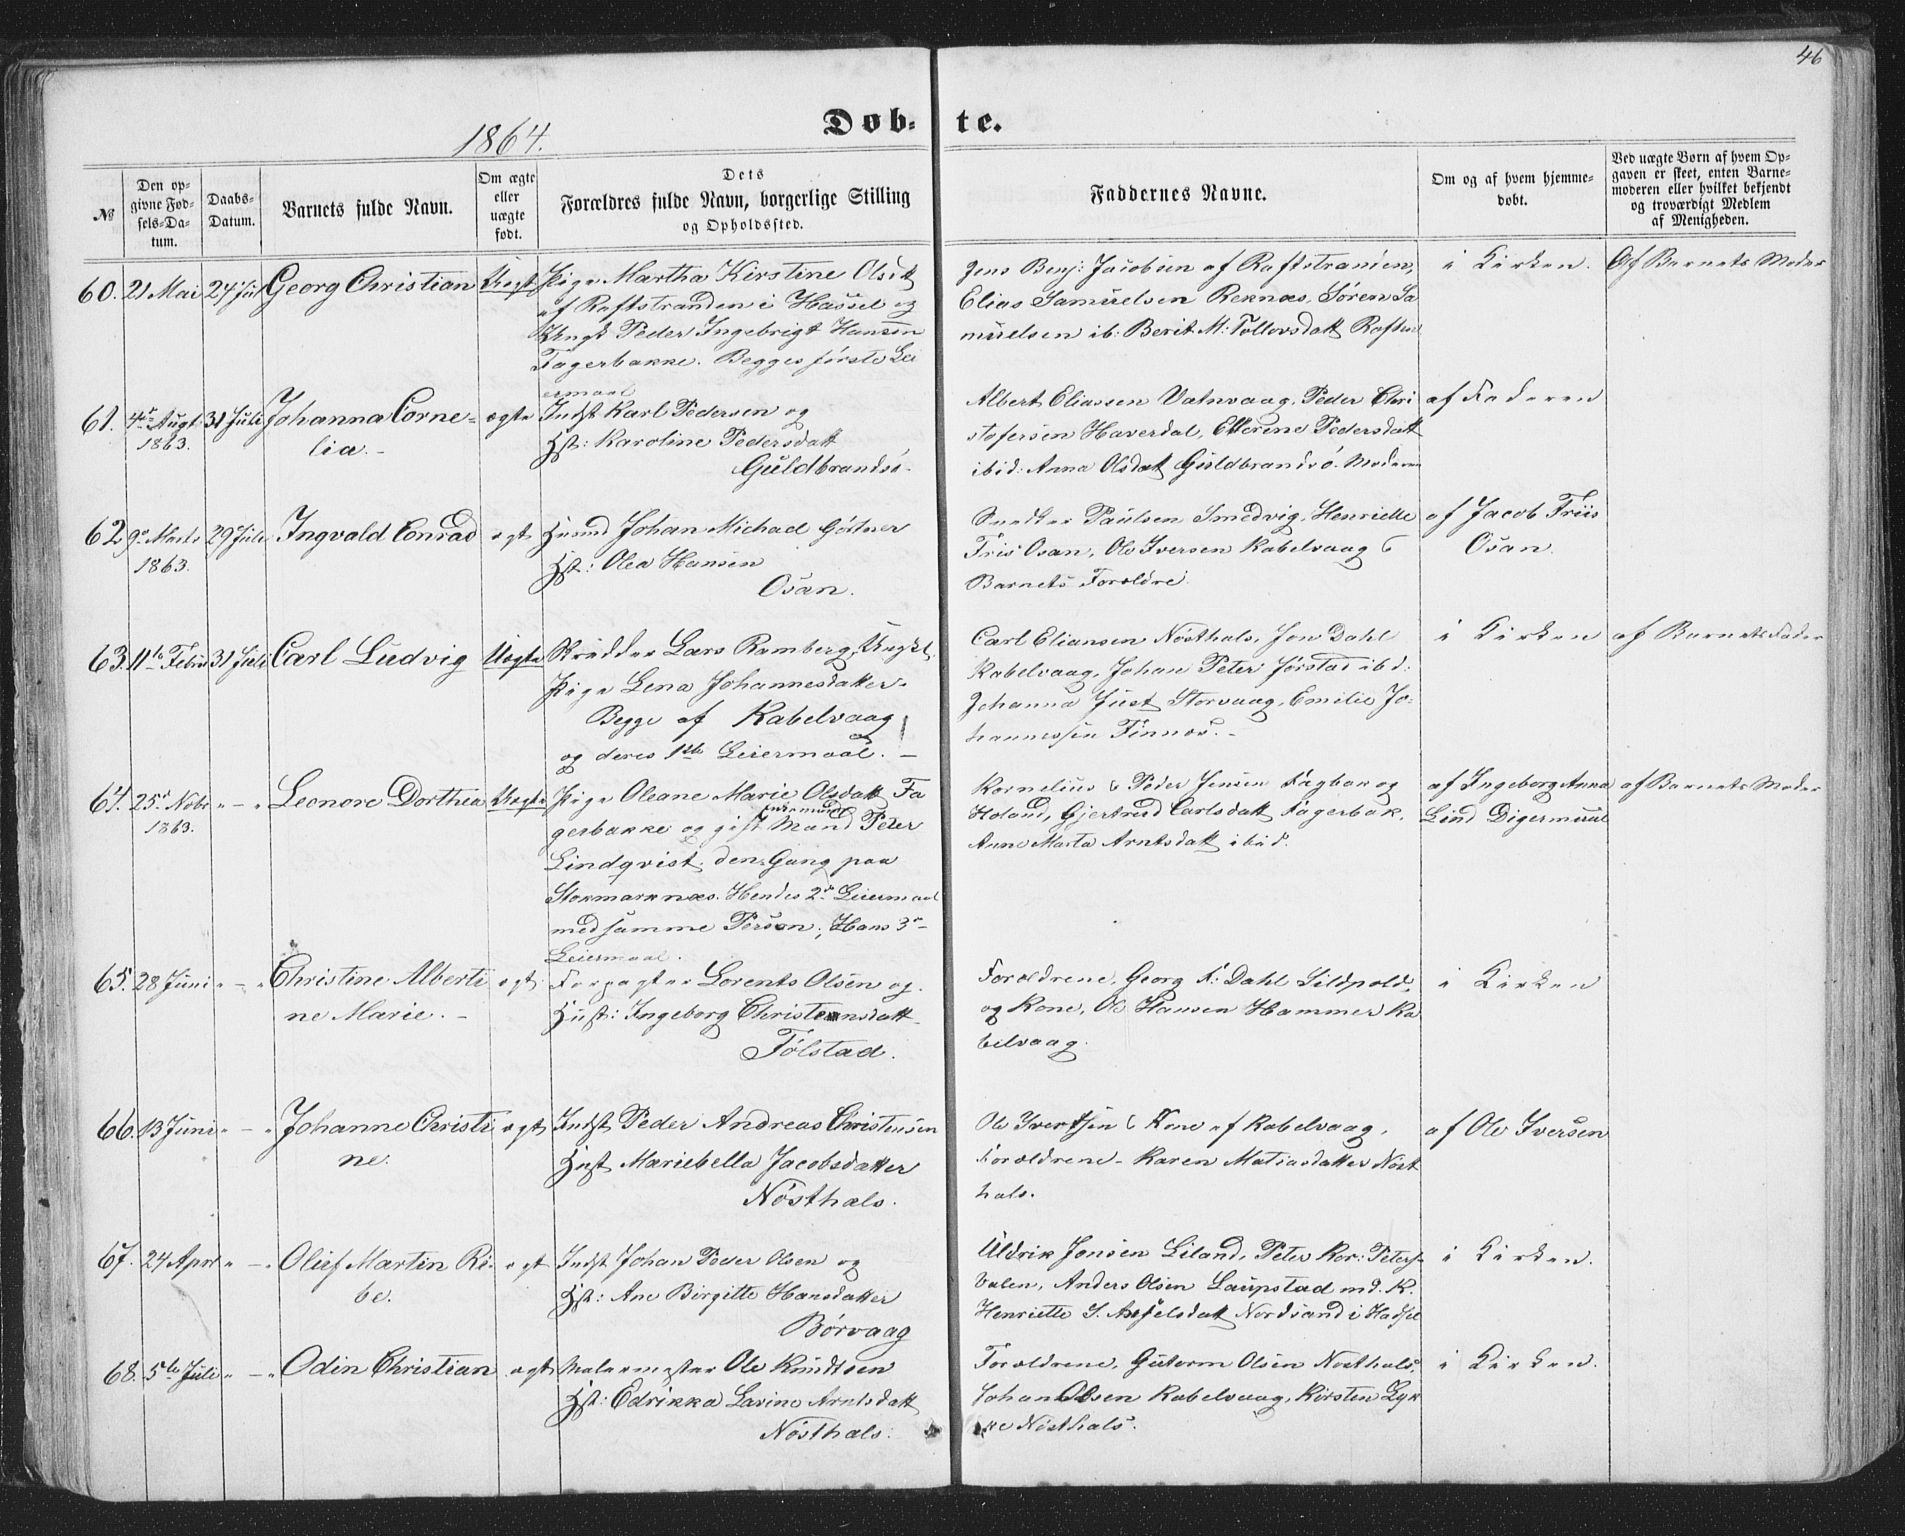 46
1864.
Døb- te.
№
Den op-
givne Fød-
sels-Da-
tum.
Daabs-
Datum.
Barnets fulde Navn.
Om ægte
eller
uægte
født.
Dets
Forældres fulde Navn, borgerlige Stilling
og Opholdssted.
Faddernes Navne.
Om og af hvem hjemme-
døbt.
Ved uægte Børn af hvem Op-
gaven er skeet, enten Barne-
moderen eller hvilket bekjendt
og troværdigt Medlem
af Menigheden.
60. 21 Mai 24 Juli Georg Christian Uægte Pige Martha Kirstine Olsdtt
af Raftstranden i Hassel og
Ungk Peder Ingebrigt Hansen
Fagerbakke. Begges første Lei
ermaal
Jens Benj: Jacobsen af Raftstranden,
Elias Samuelsen Reknæs, Søren Sa
muelsen ib: Berit M: Tollovsdatt Raften
i Kirken.
Af Barnets Moder
61. 4de Augt. 31 Juli Johanna Corne- ægte Indst Karl Pedersen og
1863. lia. Hst: Karoline Pedersdatt
Guldbrandsø.
Albert Eliassen Vatnvaag, Peder Chri
stofersen Haverdal, Ellerine Pedersdatt
ibid: Anna Olsdatt Guldbrandsø. Moderen
af Faderen
62. 9de Marts 29 Juli Ingvald Conrad ægt Huusmd Johan Michael Görtner
1863. Hst: Olea Hansen
Osan.
Paulsen Smedvig, Henriette
Friis Osan, Ole Iversen Kabelvaag &
Barnets Forældre
af Jacob Friis
Osan.
63. 11te Febru 31 Juli Carl Ludvig Uægte Skrædder Lars Ramberg, Ungkl.
Pige Lena Johannesdatter.
Begge af Kabelvaag
og deres 1ste Leiermaal.
Carl Eliansen Nösthals, Jon Dahl
Kabelvaag, Johan Peter Jørstad ibd:
Johanna Just Storvaag, Emilie Jo-
hannessen Finnæs.
i Kirken
af Barnets Fader
64. 25de Nobr " — " Leonore Dorthea Uægte Pige Oleane Marie Olsdatt Fa
1863. gerbakke og gift Mand Peter
Lindqvist, den Gang paa
Stokmarknæs. Hendes 2det Leiermaal
med samme Person; Hans 3die
Leiermaal.
Kornelius & Peder Jensen Fagbak og
Holand, Gjertrud Carlsdatt Fagerbak,
Anne Marta Arntsdatt ibid.
af Ingeborg Anna
Lind Digermuul
af Barnets Moder
65. 28 Juni " — " Christine Alberti ægt. Forpagter Lorents Olsen og
ne Marie. Hust: Ingeborg Christensdatt
Følstad.
Forældrene, Georg F: Dahl Sildpold,
og Kone, Ole Hansen Hammer Ka
belvaag.
i Kirken
66. 13 Juni " — " Johanne Christi ægt Indst Peder Andreas Christensen
ne. Hust Mariebella Jacobsdatter
Nösthals.
Ole Ivertsen & Kone af Kabelvaag,
Forældrene - Karen Matiasdatter Nöst
hals.
af Ole Iversen
67. 24 Aprl " — " Oluf Martin Ri- ægt Indst Johan Peder Olsen og
be. Hst: Ane Birgitte Hansdatter
Børvaag
Uldrik Jonsen Liland, Peter Kor: Peters-
Valen, Anders Olsen Laupstad md. K.
Henriette S. Axelsdatt Nordsand i Hadsel
i Kirken.
68. 5te Juli " — " Odin Christian ægt Malermester Ole Knudtsen
Hst: Edrikka Lavine Arntsdatt
Nösthals.
Forældrene, Gutorm Olsen Nösthals
Johan Olsen Kabelvaag, Kirsten Lyk
ke Nösthals.
i Kirken.